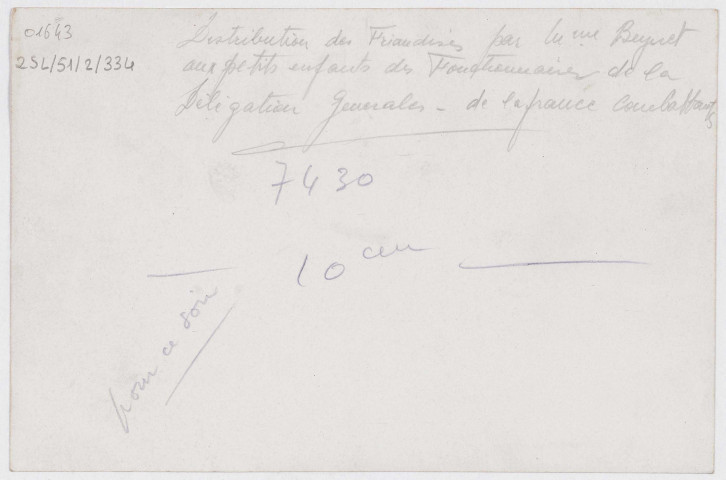 01643
2SL/51/2/334
Distribution des Friandises par Mme Beynet
aux petits enfants des Fonctionnaires de la
Délégation Generales - de la france combattants
7430
10 cm
pour ce soir